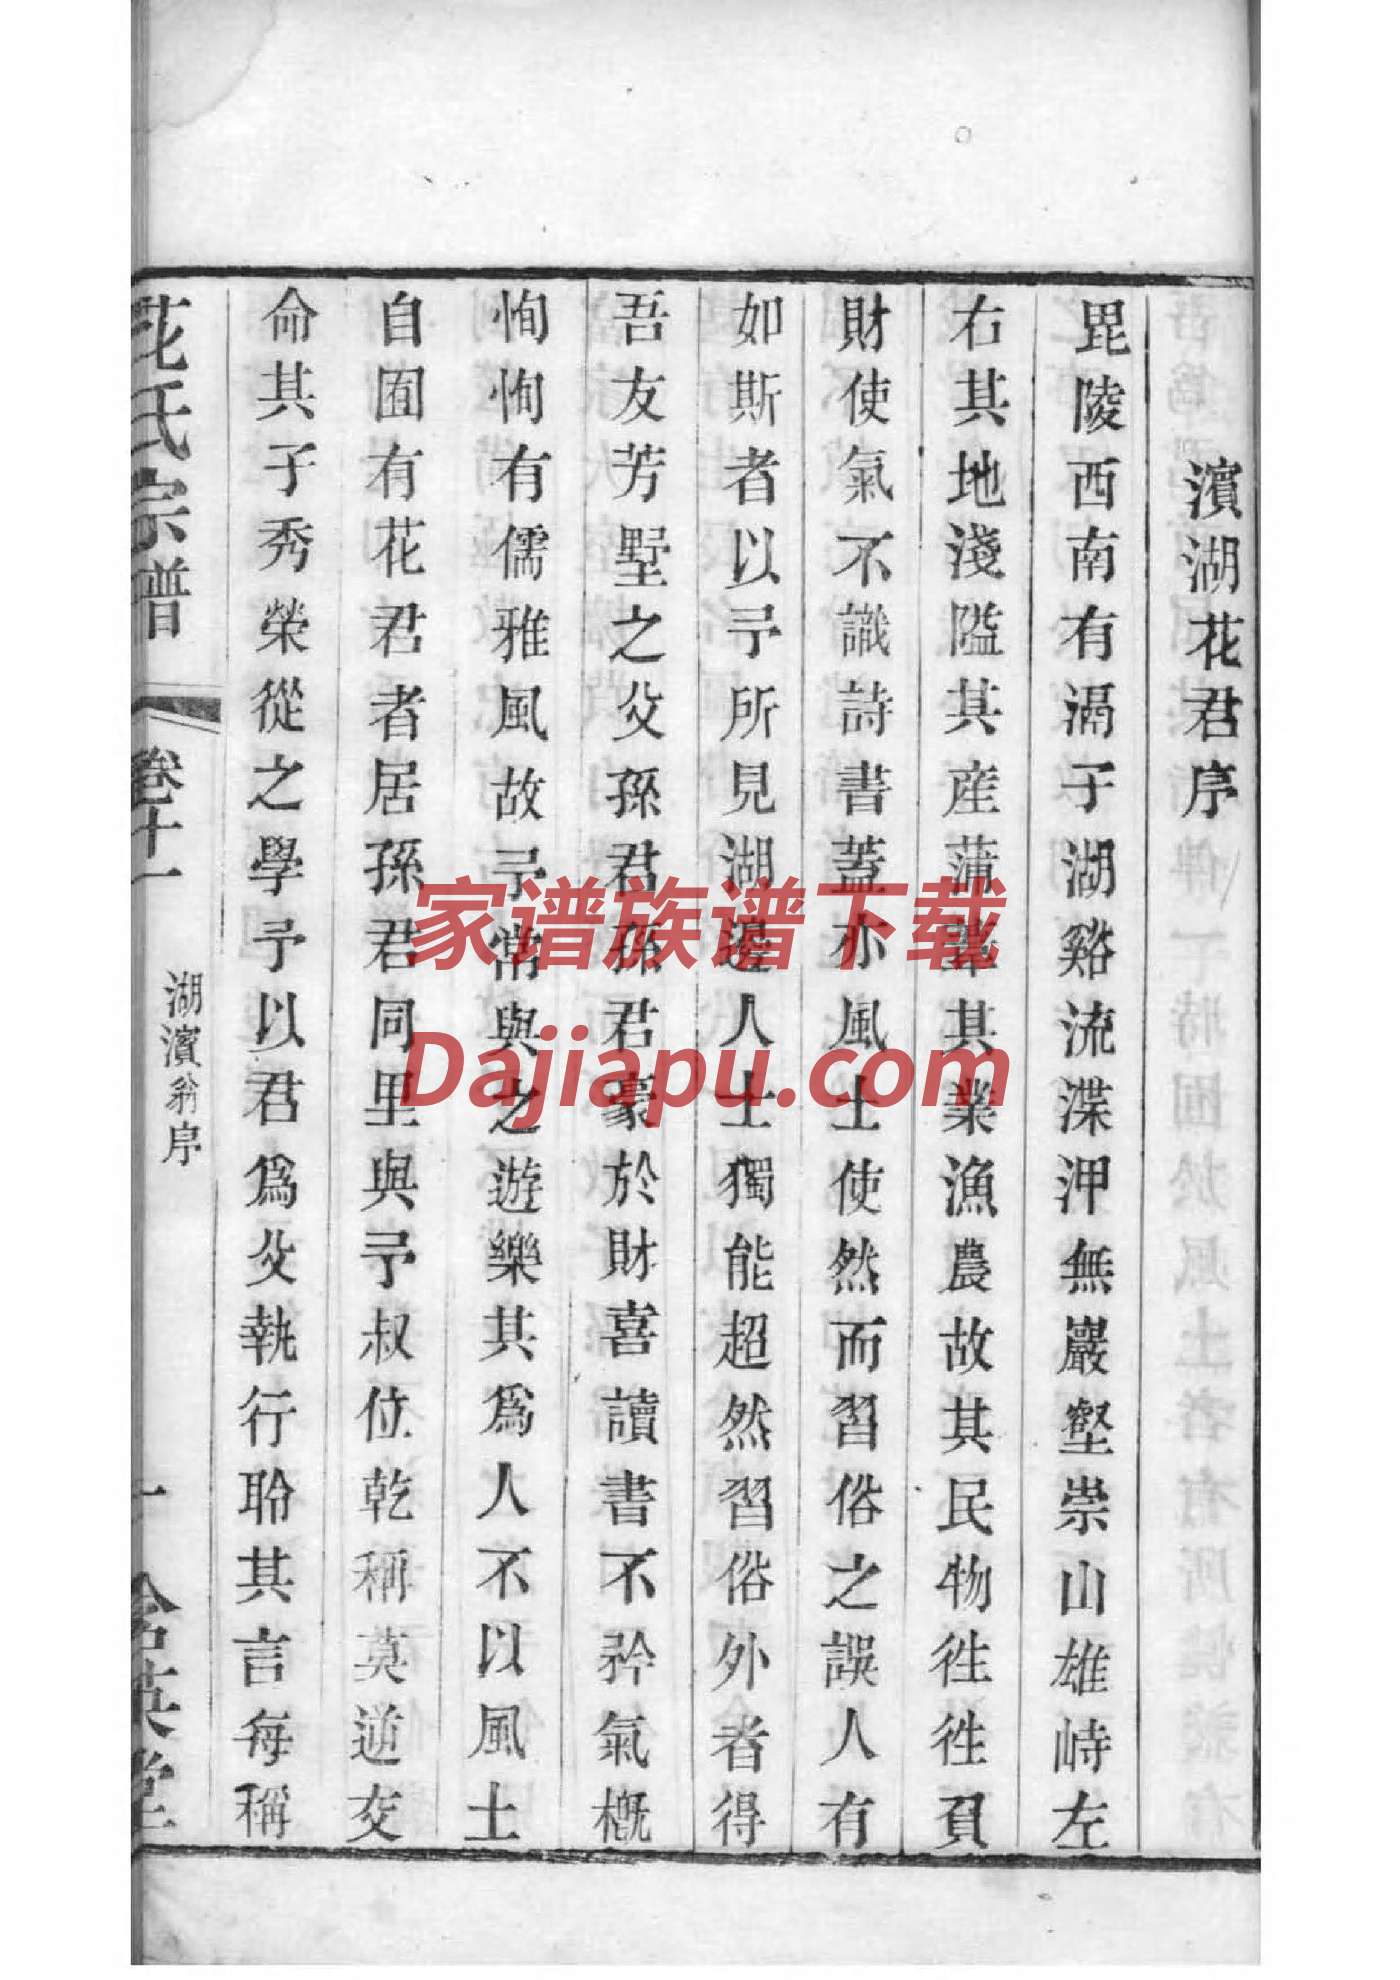 濱湖花君序
毘陵西南有滆子湖谿流渫浬無巖壑崇山雄峙左
右其地淺隘其產蒲葦其業漁農故其民物徃徃負
財使氣不識詩書蓋亦風土使然而習俗之誤人有
如斯者以予所見湖邊人士獨能超然習俗外者得
吾友芳墅之父孫君孫君豪於財喜讀書不矜氣概
恂恂有儒雅風故予常與之遊樂其爲人不以風土
自囿有花君者居孫君同里與予叔位乾稱莫逆交
命其子秀榮從之學予以君爲父執行聆其言每稱
花氏宗譜
卷十一
湖濱翁序
一
含英堂
家谱族谱下载
Dajiapu.com